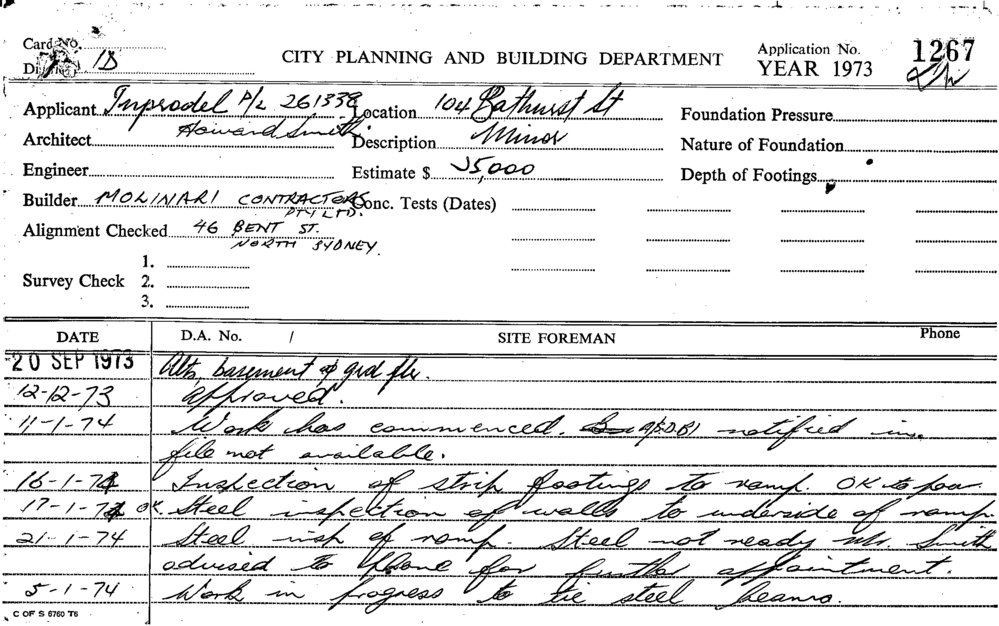 Card No.
District 1B
CITY PLANNING AND BUILDING DEPARTMENT
Application No. 1267
YEAR 1973
Applicant Inprodel P/L 261338 Location 104 Bathurst St Foundation Pressure
Architect Howard Smith Description Minor Nature of Foundation
Engineer Estimate $ 25,000 Depth of Footings
Builder MOLINARI CONTRACTORS PTY LTD. Conc. Tests (Dates)
Alignment Checked 46 BENT ST.
NORTH SYDNEY.
1.
Survey Check 2.
3.
DATE D.A. No. / SITE FOREMAN Phone
20 SEP 1973 Alts, basement & grd flr.
12-12-73 approved.
11-1-74 Work has commenced. notified in
file not available.
16-1-74 Inspection of strip footings to ramp. OK to pour
17-1-74 OK. Steel inspection of walls to underside of ramp
21-1-74 Steel insp of ramp. Steel not ready Mr. Smith
advised to phone for further appointment.
5-1-74 Work in progress to tie steel beams.
C OF S 6760 T6